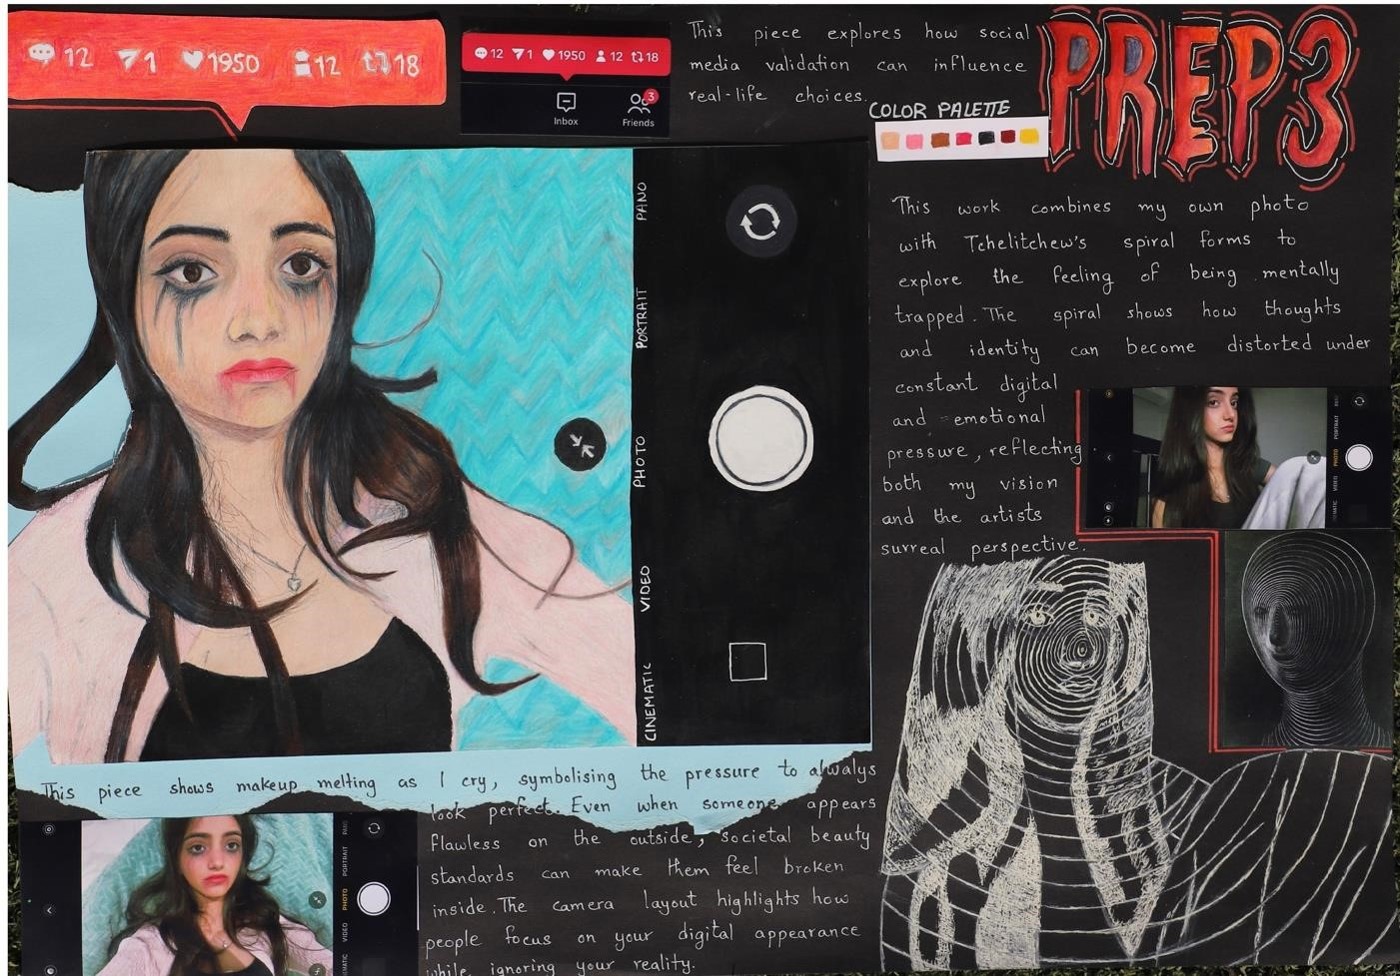 12 1 1950 12 18
12 1 1950 12 18
Inbox
3
Friends
This piece explores how social
media validation can influence
real-life choices.
COLOR PALETTE
PREP3
PANO
PORTRAIT
PHOTO
VIDEO
CINEMATIC
This work combines my own photo
with Tchelitchew's spiral forms to
explore the feeling of being mentally
trapped. The spiral shows how thoughts
and identity can become distorted under
constant digital
and emotional
pressure, reflecting
both my vision
and the artists
surreal perspective.
PORTRAIT
PHOTO
VIDEO
This piece shows makeup melting as I cry, symbolising the pressure to alwalys
look perfect. Even when someone appears
flawless on the outside, societal beauty
standards can make them feel broken
inside. The camera layout highlights how
people focus on your digital appearance
while ignoring your reality.
PORTRAIT
PHOTO
VIDEO